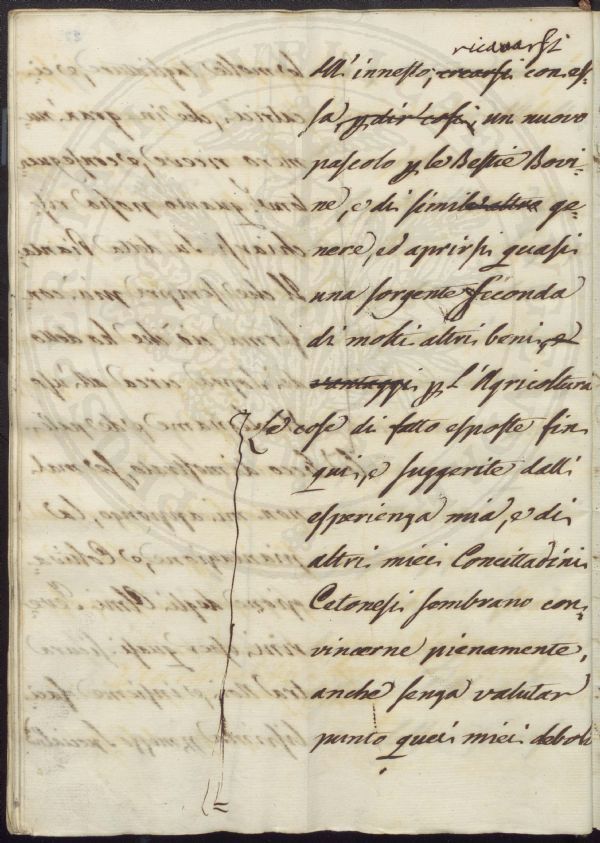 ricavarsi
all'innesto, crearsi con es-
sa, p dir così, un nuovo
pascolo p le Bestie Bovi-
ne, e di simil altro ge-
nere, ed aprirsi quasi
una sorgente feconda
di molti altri beni, e
vantaggi p l'Agricoltura
Le cose di fatto esposte fin
qui, e suggerite dall'
esperienza mia, e di
altri miei Concittadini
Cetonesi sembrano con-
vincerne pienamente,
anche senza valutar
punto quei miei deboli